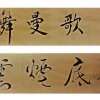 歌曼舞
底煙雲